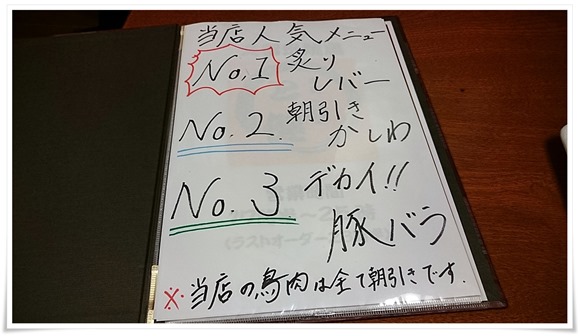 当店人気メニュー
No.1 炙り
レバー
No.2. 朝引き
かしわ
No.3 デカイ!!
豚バラ
※当店の鳥肉は全て朝引きです.
(ラストオーダー